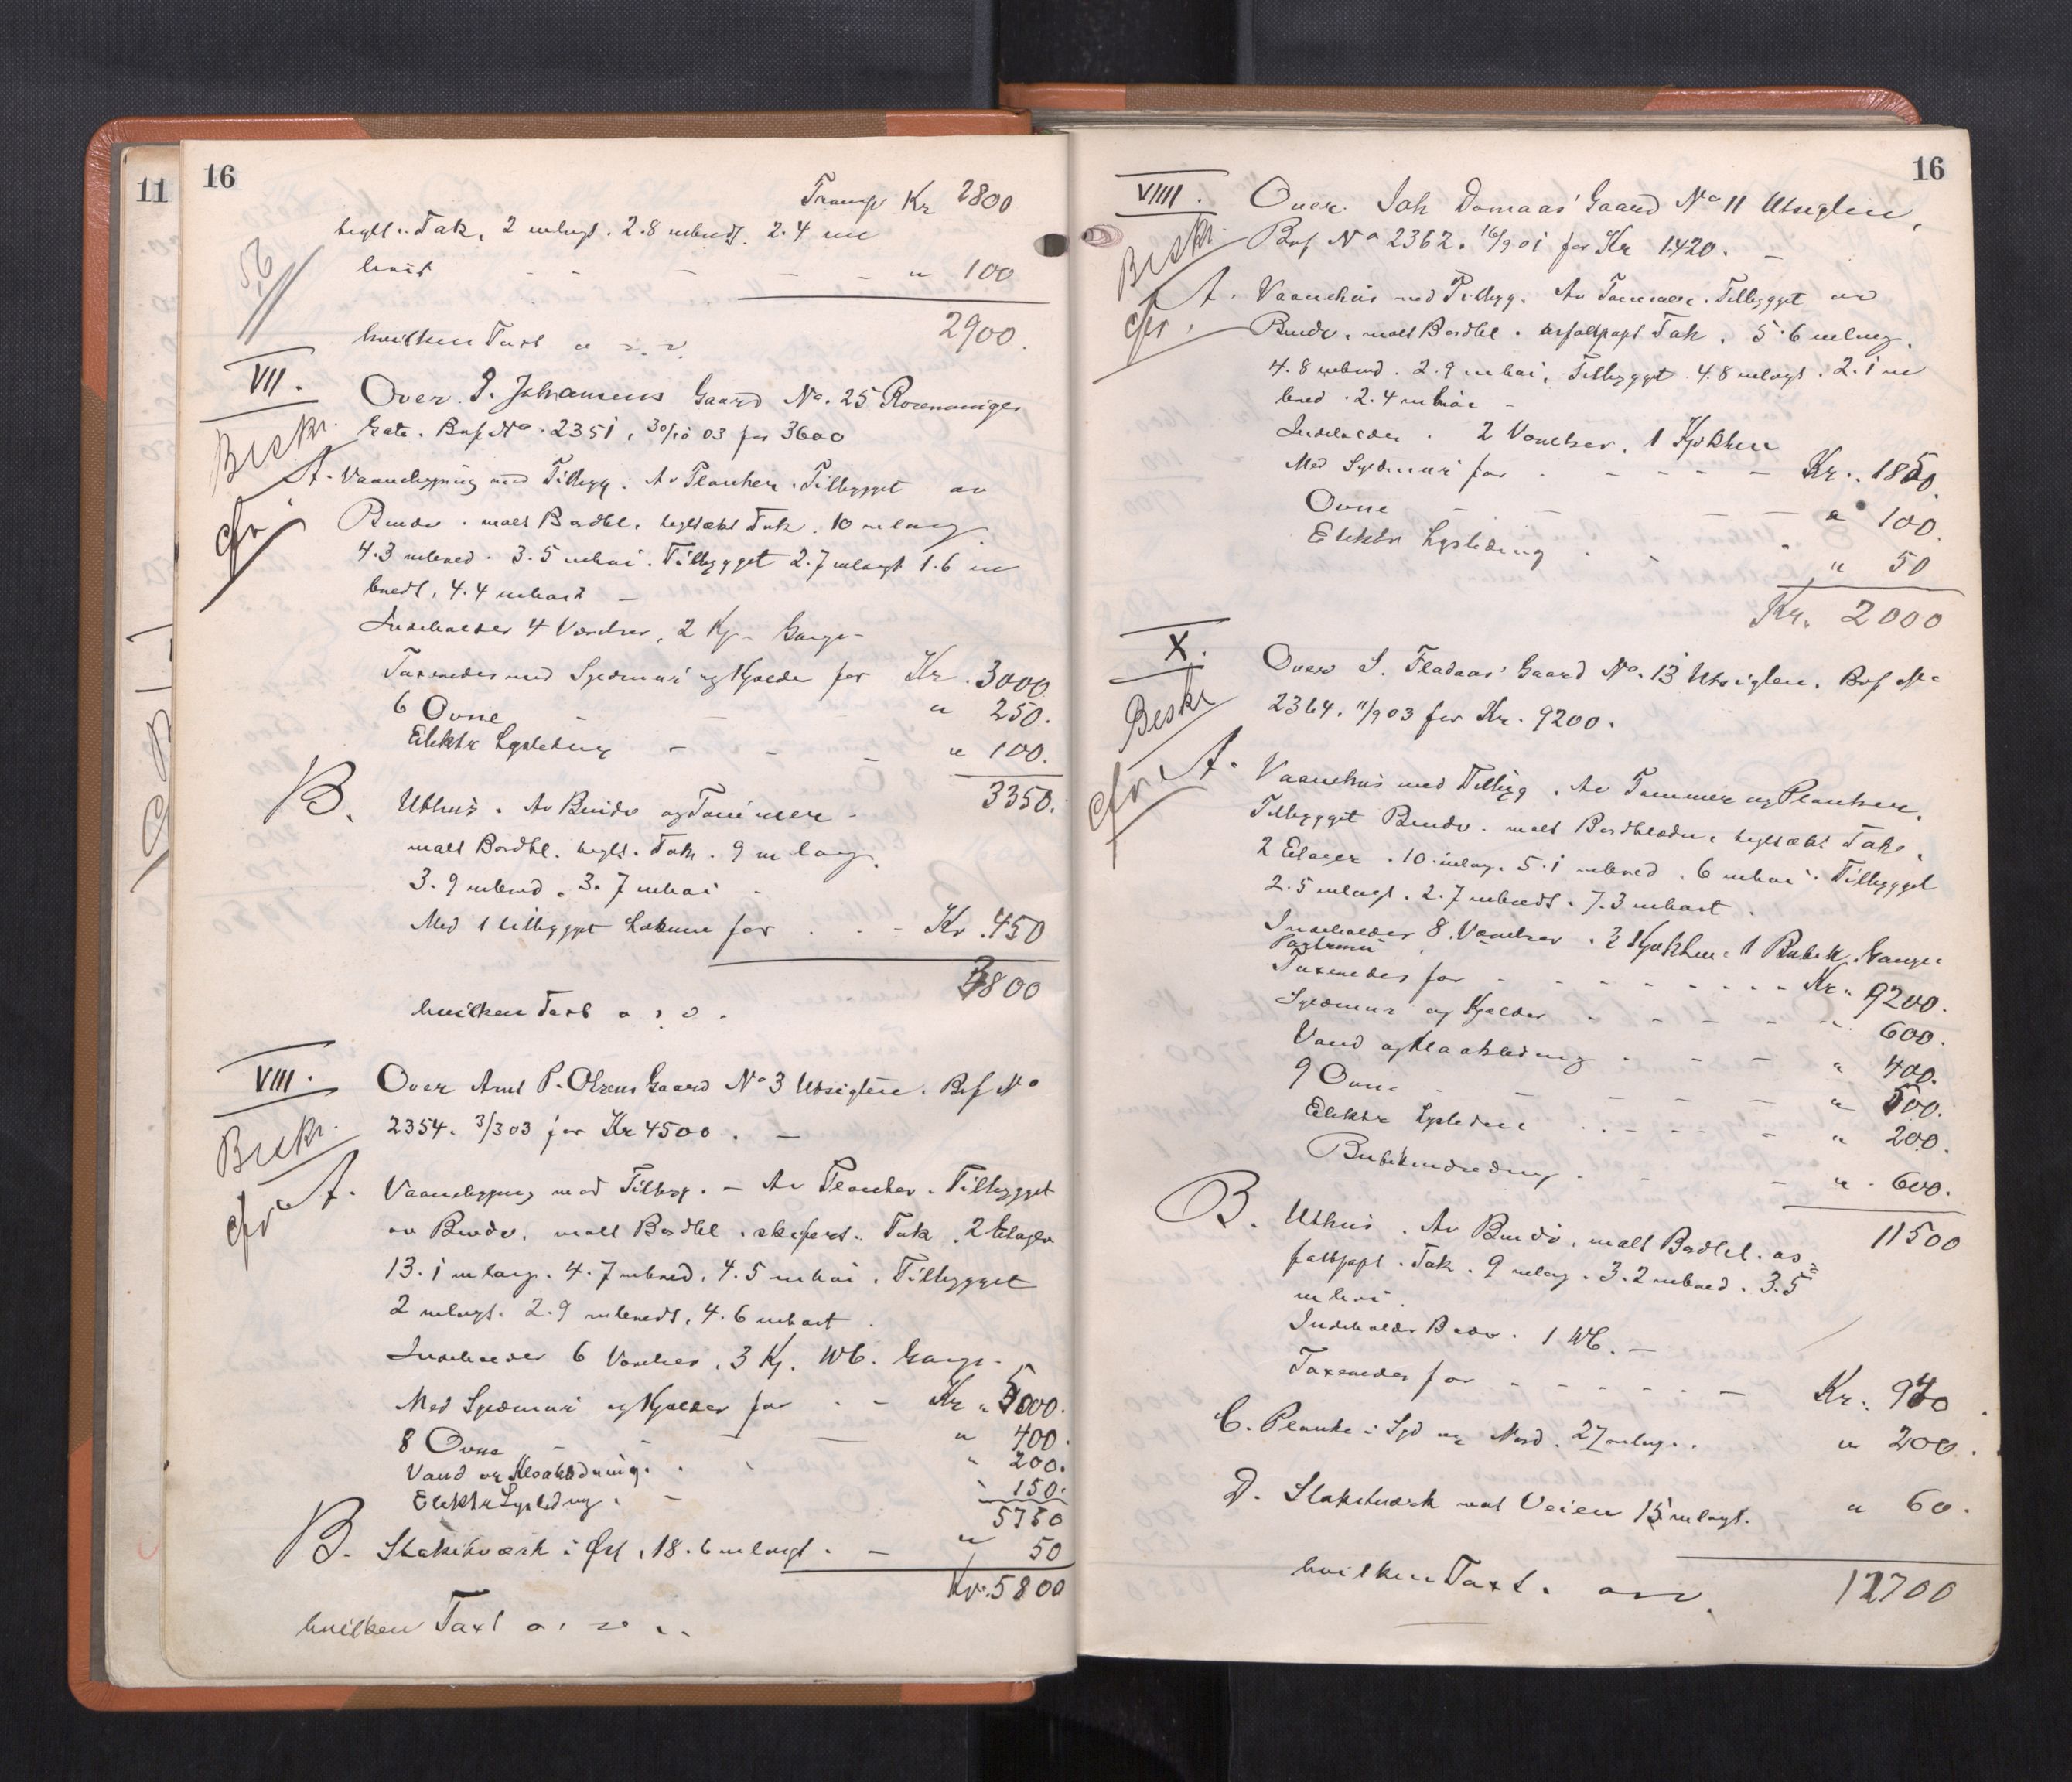 16
Transp Kr 2800
tegltækt Tak, 2 m langt. 2.8 m bredt. 2.4 m
høit " 100
2900.
hvilken Taxt o. s. v.
VII.
Beskr.
cfr.
Over J. Johansens Gaard No. 25 Rosenborges
Gate. Brf No. 2351, 30/10 03 for 3600
A. Vaaningsbygning med Tilbyg. Av Planker. Tilbygget av
Bindv. malt Bordkl. tegltækt Tak. 10 m lang
4.3 m bred. 3.5 m høi. Tilbygget 2.7 m langt 1.6 m
bredt, 4.4 m høit –
Indeholder 4 Værelser, 2 Kj. Gange –
Taxeredes med Syldmur og Kjelder for Kr. 3000
6 Ovne " 250.
Elektr Lysledning " 100.
3350.
B. Uthus. Av Bindv og Tømmer –
malt Bordkl. teglt. Tak. 9 m lang.
3.9 m bred. 3.7 m høi –
Med 1 tilbygget Latrine for Kr. 450
3800
hvilken Taxt o. s. v.
VIII.
Beskr.
cfr.
Over Arnt P. Olsens Gaard No 3 Utsigten. Brf No
2354. 3/3 03 for Kr 4500. –
A. Vaaningsbygning med Tilbyg. – Av Planker. Tilbygget
av Bindv. malt Bordkl. skifert. Tak. 2 Etager
13.1 m lang. 4.7 m bred. 4.5 m høi. Tilbygget
2 m langt. 2.9 m bredt, 4.6 m høit.
Indeholder 6 Værelser, 3 Kj. WC. Gange –
Med Syldmur og Kjelder for Kr " 5000.
8 Ovne " 400.
Vand og Kloakledning. " 200.
Elektr Lysledning. " 150.
5750
B. Stakitværk i Øst, 18.6 m langt. – " 50
Kr. 5800
hvilken Taxt o. s. v.
16
VIIII.
Beskr.
cfr.
Over Joh Domaas' Gaard No 11 Utsigten,
Brf No 2362. 16/9 01 for Kr 1420. –
A. Vaanehus med Tilbyg. Av Tømmer. Tilbygget av
Bindv. malt Bordkl. asfaltpapt Tak. 5.6 m lang.
4.8 m bred. 2.9 m høi, Tilbygget 4.8 m langt. 2.1 m
bred. 2.4 m høi –
Indeholder. 2 Værelser, 1 Kjøkken
Med Syldmur for Kr. 1850.
Ovne " 100.
Elektr Lysledning " 50
Kr. 2000
X.
Beskr
cfr.
Over S. Fladaas' Gaard No. 13 Utsigten. Brf No
2364. 11/9 03 for Kr. 9200.
A. Vaanehus med Tilbyg. Av Tømmer og Planker.
Tilbygget Bindv. malt Bordklædn. tegltækt Tak.
2 Etager. 10 m lang. 5.1 m bred. 6 m høi. Tilbygget
2.5 m langt. 2.7 m bredt. 7.3 m høit.
Indeholder 8 Værelser. 2 Kjøkken. 1 Butik. Gange.
Taxeredes for Kr. 9200.
Syldmur og Kjelder " 600.
Vand og Kloakledning " 400.
9 Ovne " 500.
Elektr Lysledn " 200.
Butikindredning. " 600.
11500
B. Uthus. Av Bindv. malt Bordkl. as=
faltpapt. Tak. 9 m lang. 3.2 m bred. 3.5
m høi.
Indeholder Boder. 1 WC. –
Taxeredes for Kr. 940
C. Planke i Syd og Nord. 27 m lang. " 200.
D. Stakitværk mot Veien 15 m langt. " 60.
12700
hvilken Taxt. osv.
11